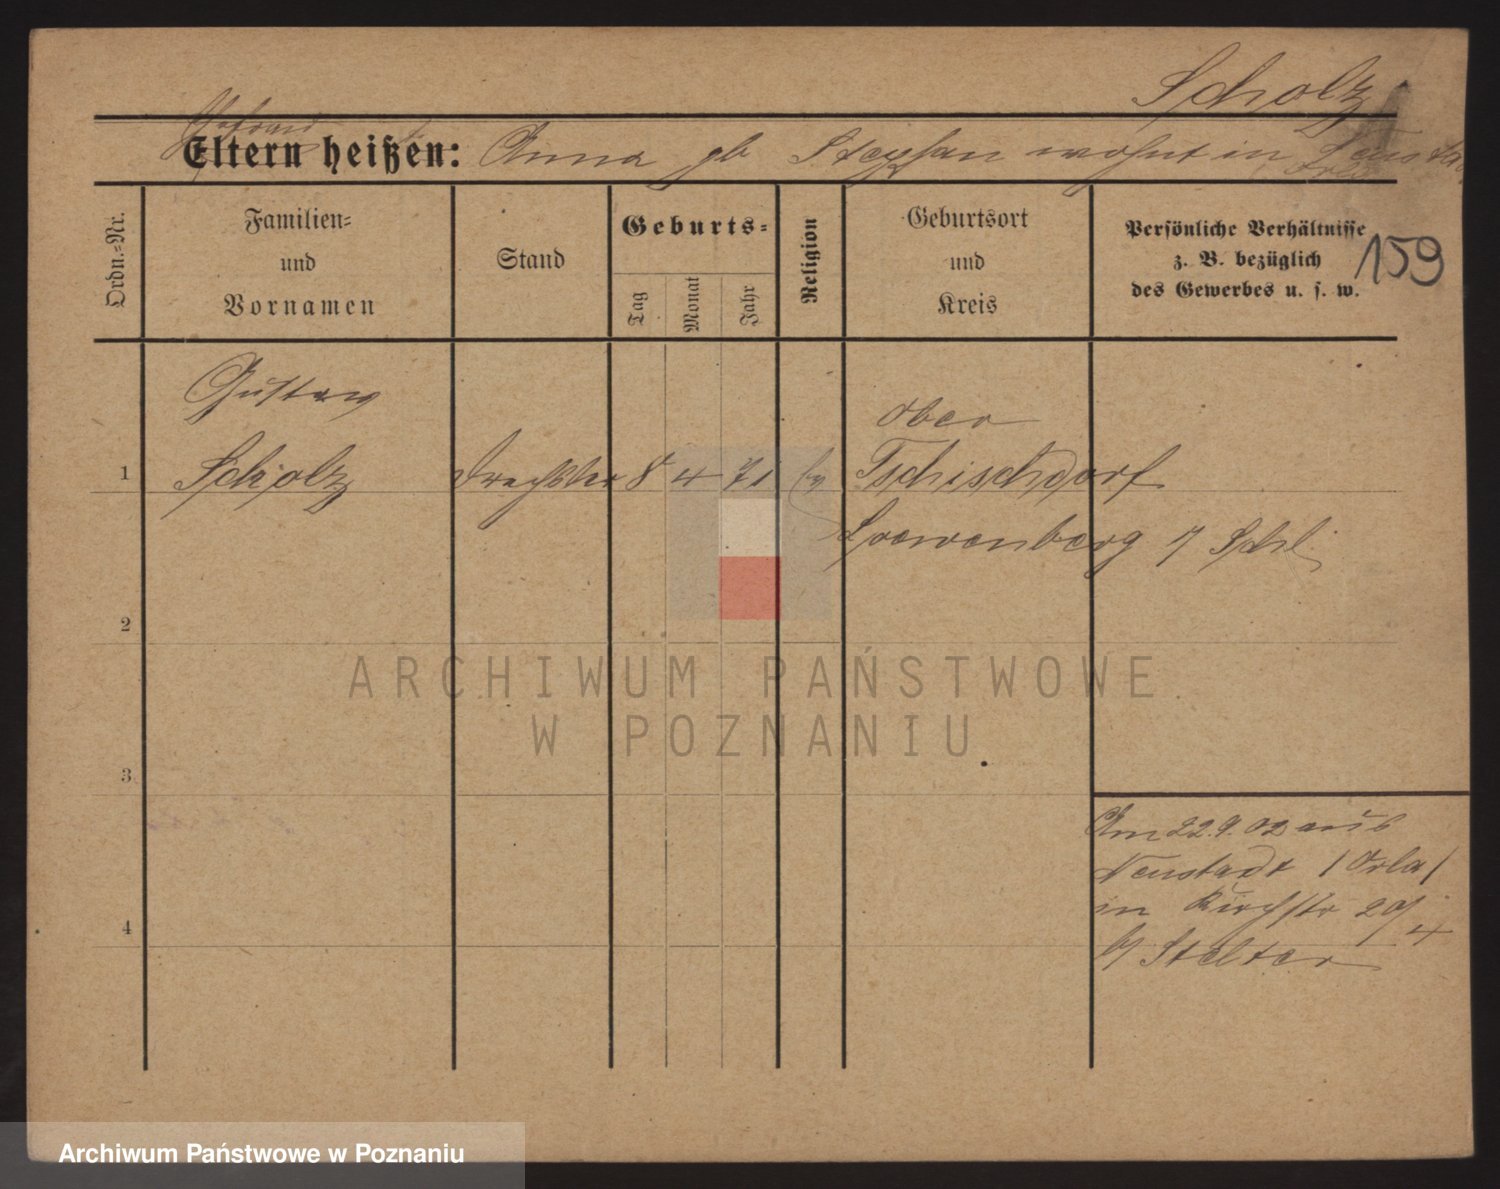 Scholz
Eltern heißen: Anna gb Stephan wohnt in
Ordn.-Nr.
Familien-
und
Vornamen
Stand
Geburts-
Tag
Monat
Jahr
Religion
Geburtsort
und
Kreis
Persönliche Verhältnisse
z. B. bezüglich
des Gewerbes u. s. w.
159
Gustav
Ober
1 Scholz Drechsler 8 4 71 ev Tschischdorf
Loewenberg / Schl.
2
ARCHIWUM PAŃSTWOWE
W POZNANIU
3
Am 22.9.02 aus
Neustadt /Orla/
in Kirchstr 20/4
b/ Stelter
4
Archiwum Państwowe w Poznaniu